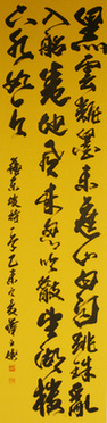 黑雲翻墨未遮山白雨跳珠亂
入船卷地風來忽吹散望湖樓
下水如天
蘇東坡詩一首乙未